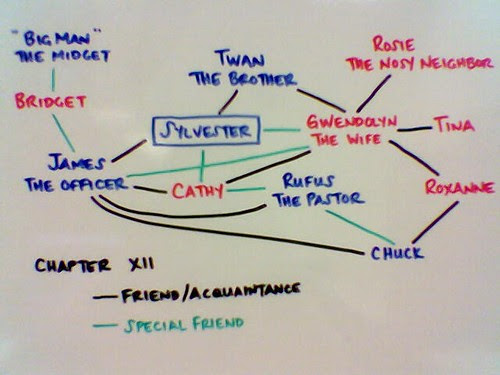 "BIG MAN"
THE MIDGET
TWAN
THE BROTHER
ROSIE
THE NOSY NEIGHBOR
BRIDGET
SYLVESTER
GWENDOLYN
THE WIFE
TINA
JAMES
THE OFFICER
CATHY
RUFUS
THE PASTOR
ROXANNE
CHUCK
CHAPTER XII
FRIEND/ACQUAINTANCE
SPECIAL FRIEND